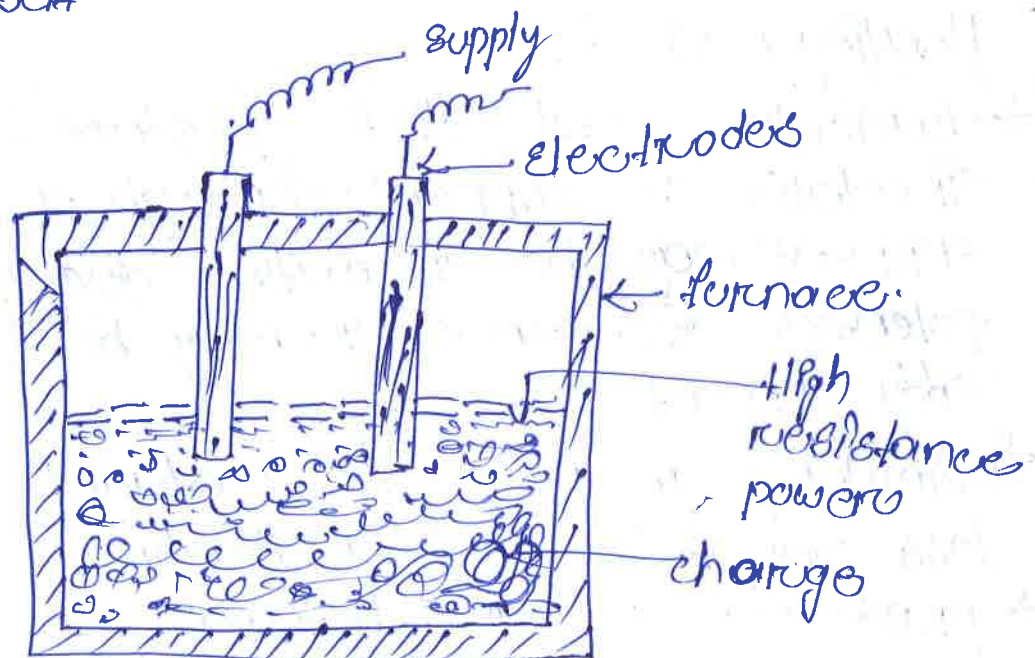 supply
Electrodes
furnace.
High
resistance
powers
charge